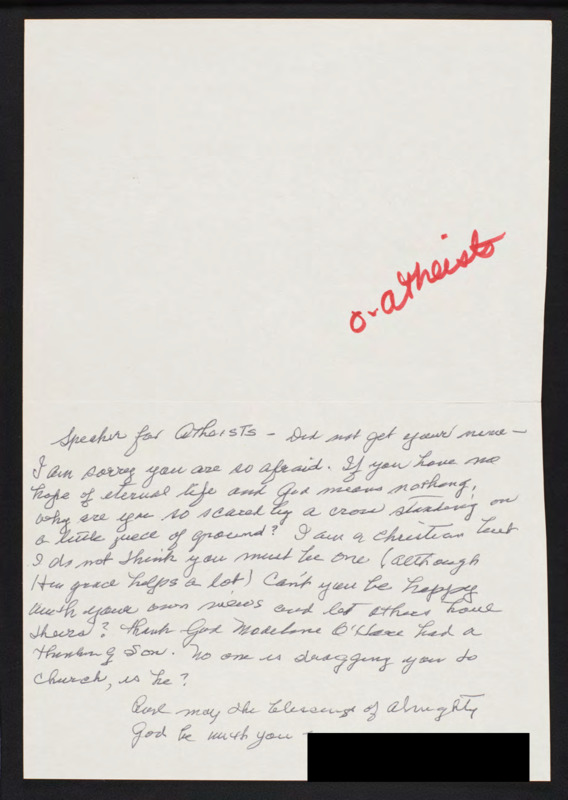 o-atheists
Speaker for Atheists - Did not get your name -
I am sorry you are so afraid. If you have no
hope of eternal life and God means nothing,
why are you so scared by a cross standing on
a little piece of ground? I am a Christian but
I do not think you must be one (although
His grace helps a lot) Can't you be happy
with your own views and let others have
theirs? Thank God Madelane O'Hare had a
thinking Son. No one is dragging you to
Church, is he?
And may the blessings of Almighty
God be with you -